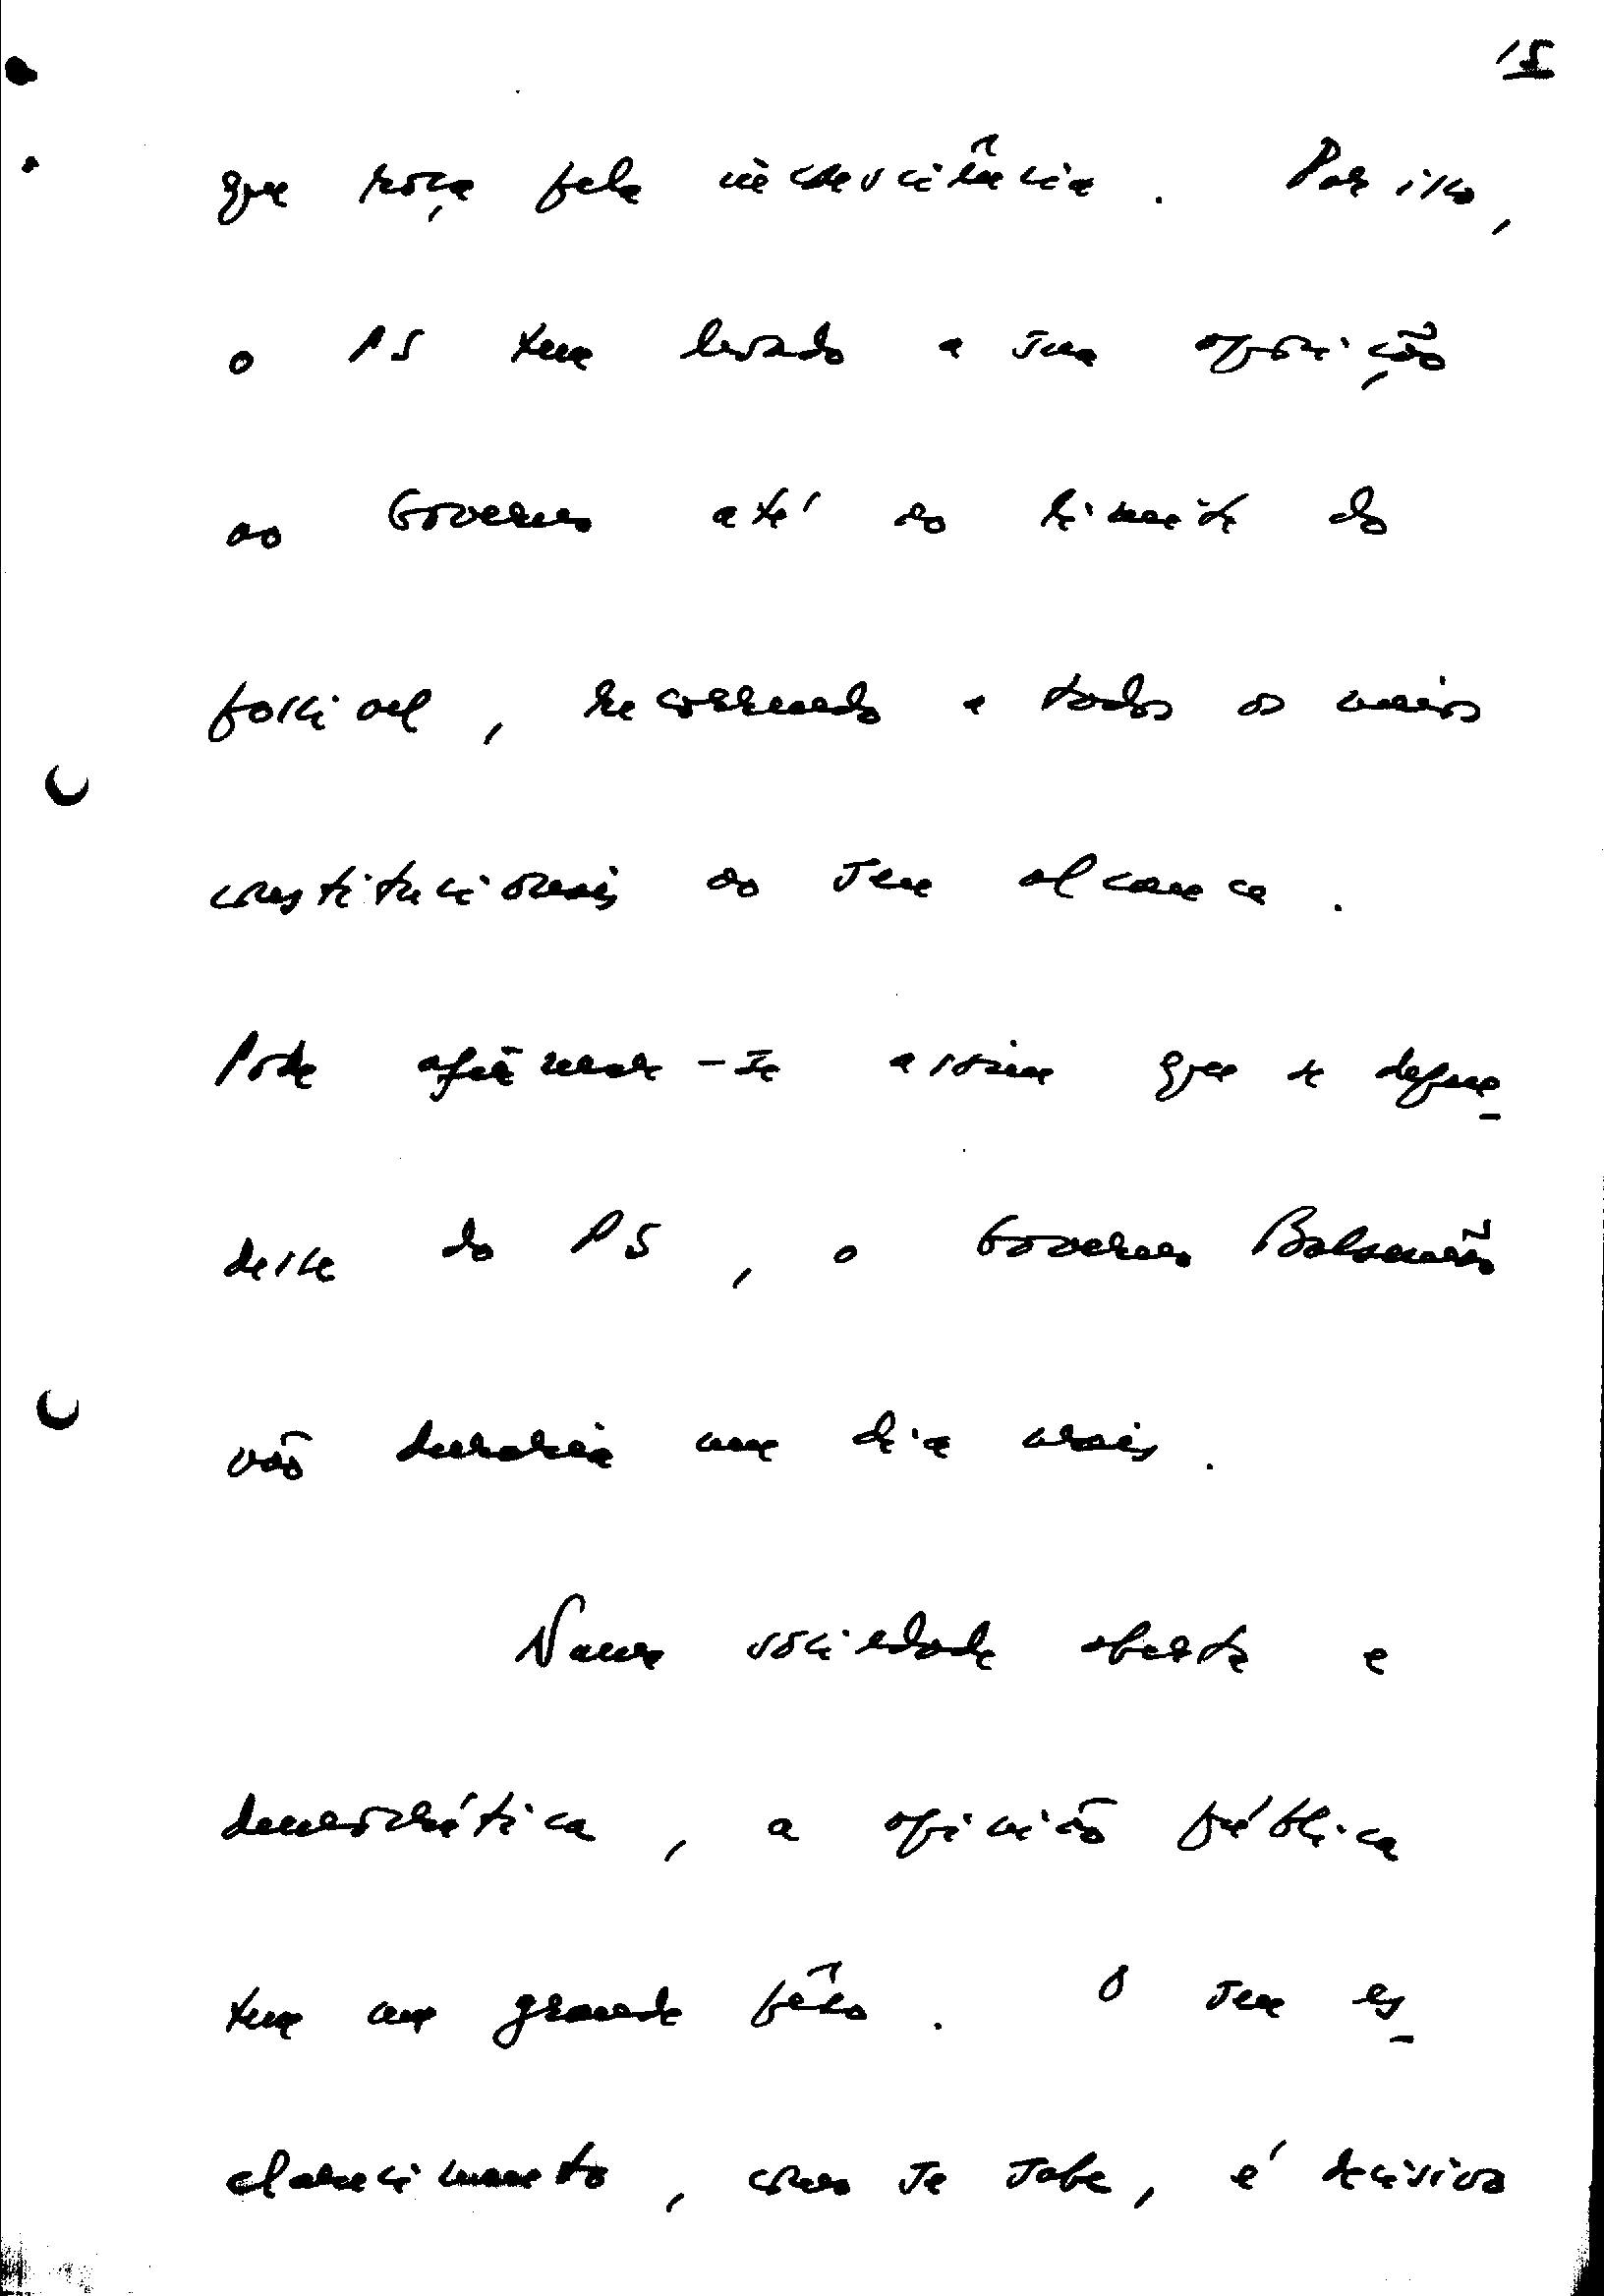 15
que roça pela inconsciência. Por isso,
o PS tem levado a sua oposição
ao Governo até ao limite do
possível, recorrendo a todos os meios
constitucionais ao seu alcance.
Pode afirmar-se assim que se depen-
desse do PS, o Governo Balsemão
não duraria um dia mais.
Numa sociedade aberta e
democrática, a opinião pública
tem um grande pêso. O seu es-
clarecimento, como se sabe, é decisivo